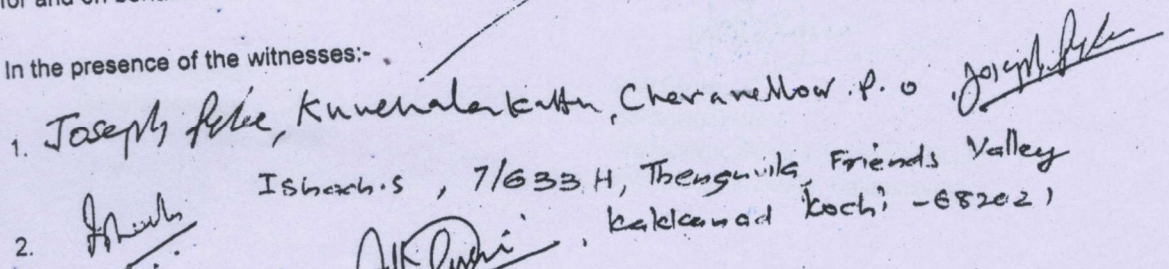 for and on behalf
In the presence of the witnesses:-
1. Joseph Pylee, Kunchalakattu, Cheranellow. P. O
Ishach.S, 7/633 H, Thenguvila, Friends Valley
2.
Kakkanad Kochi - 682021